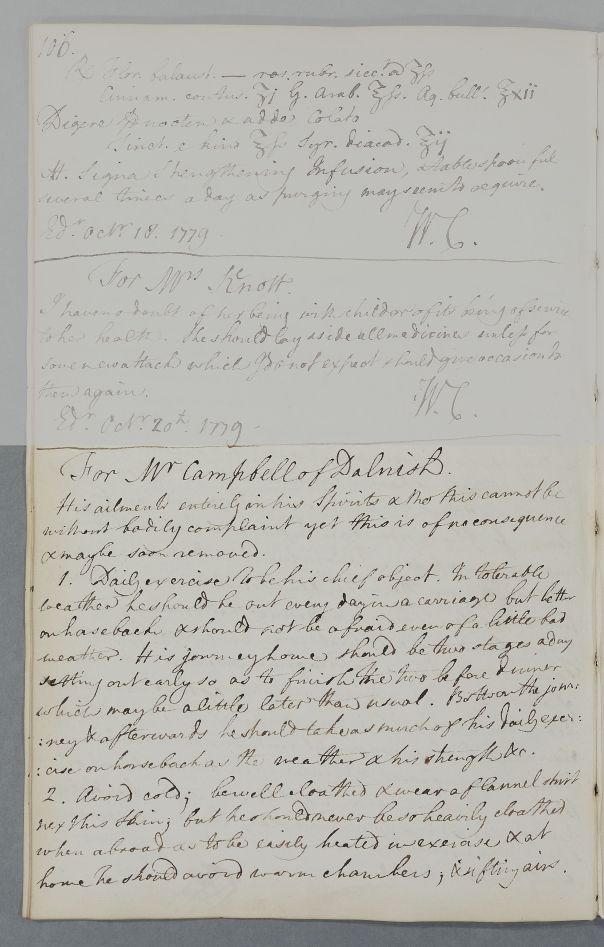 106.
℞ Flor. balaust. — ros. rubr. siccat. a ʒſs
Cinnam. contus. ʒj G. Arab. ʒſs. Aq. bull. ℥xii
Digere pr noctem & adde Colato
Tinct. e kino ℥ſs Syr. diacod. ℥ij
M. Signa Strengthening Infusion, a tablespoonful
several times a day as purging may seem to require.
Edr. Octr. 18. 1779
W. C.
For Mrs Knott.
I have no doubt of her being with child or of its being of service
to her health. She should lay aside all medicines unless for
some new attack which I do not expect should give occasion to
them again.
W. C.
Edr. Octr. 20th. 1779 -
For Mr Campbell of
His ailments entirely in his Spirits & tho this cannot be
without bodily complaint yet this is of no consequence
& may be soon removed.
1. Daily exercise to be his chief object. In tolerable
weather he should be out every day in a carriage but better
on horseback & should not be afraid even of a little bad
weather. His journey home should be two stages a day
setting out early so as to finish the two before dinner
which may be a little later than usual. Both on the jour:
:ney & afterwards he should take as much of his daily exer:
:cise on horseback as the weather & his strength &c.
2. Avoid cold; be well cloathed & wear a flannel shirt
next his Skin; but he should never be so heavily cloathed
when abroad as to be easily heated in exercise & at
home he should avoid warm chambers, & sifting airs.